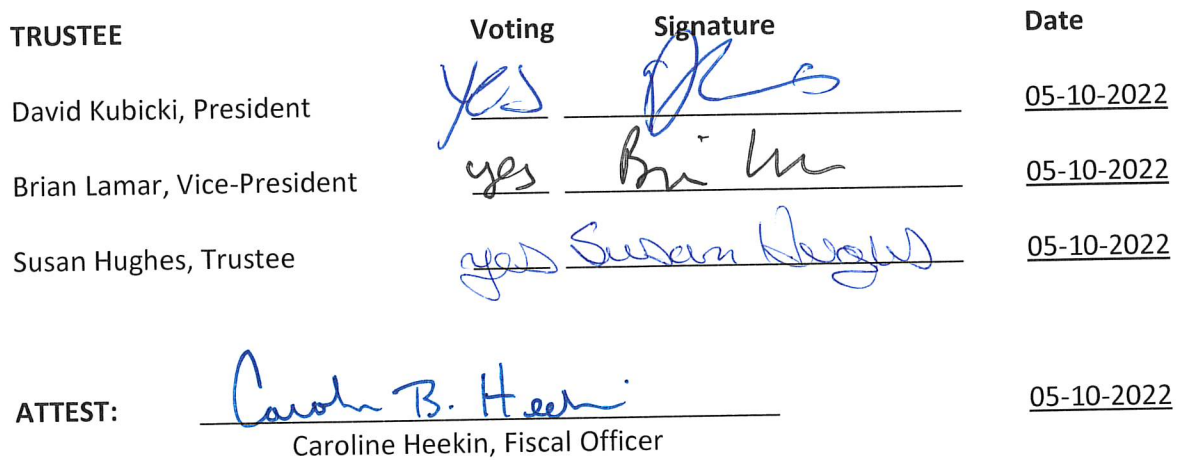 TRUSTEE Voting Signature Date
David Kubicki, President yes 05-10-2022
Brian Lamar, Vice-President yes 05-10-2022
Susan Hughes, Trustee yes Susan Hughes 05-10-2022
ATTEST: Carolin B. Heekin 05-10-2022
Caroline Heekin, Fiscal Officer